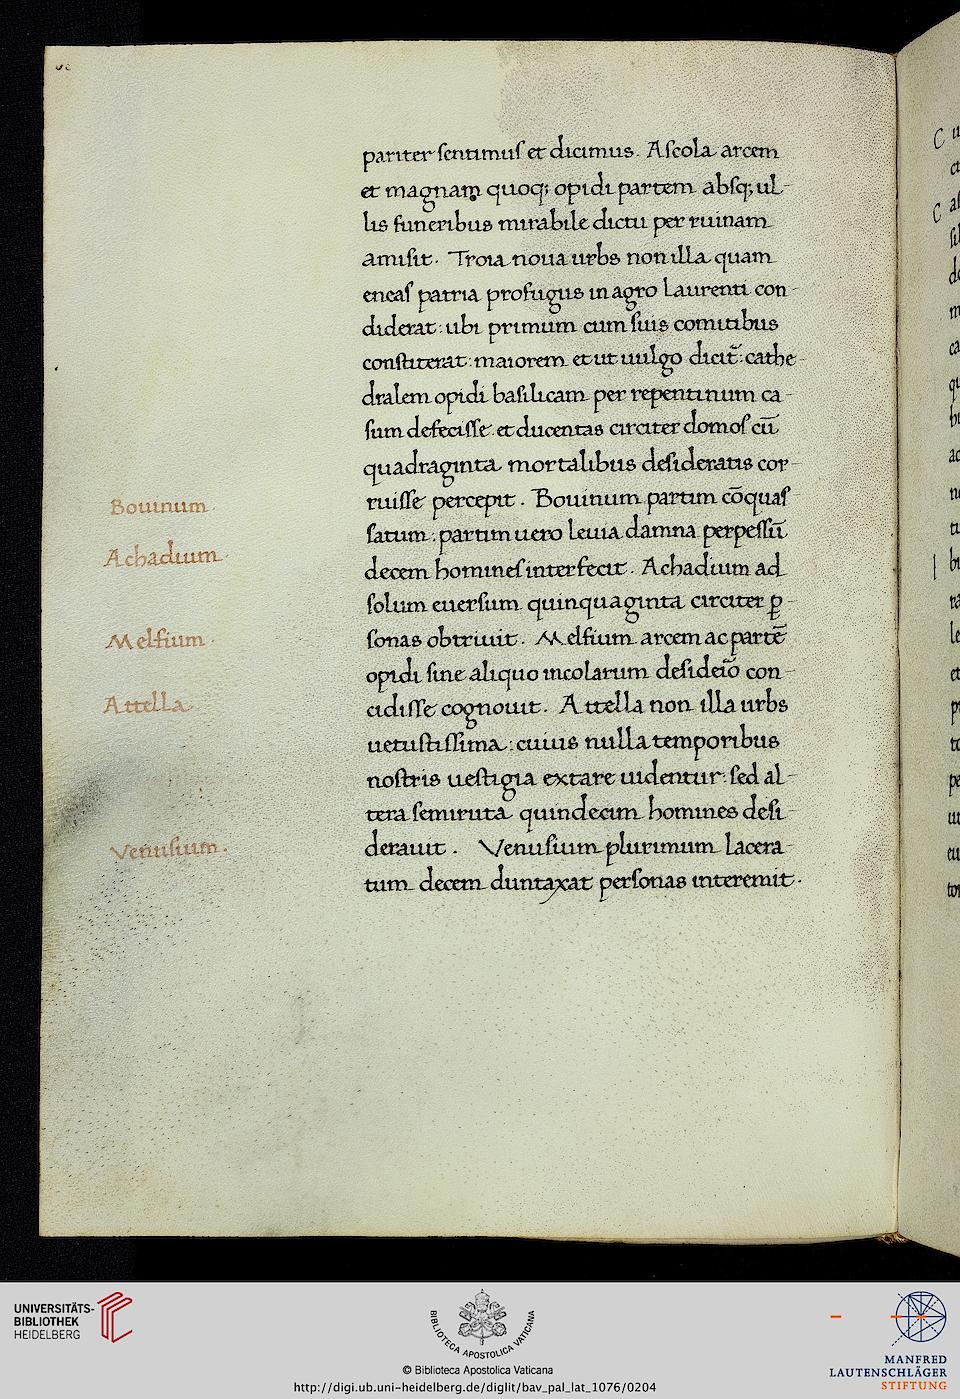 pariter sentimus et dicimus. Ascola arcem
et magnam quoq; opidi partem absq; ul-
lis funeribus mirabile dictu per ruinam
amisit. Troia noua urbs non illa quam
eneas patria profugus in agro Laurenti con-
diderat: ubi primum cum suis comitibus
constiterat: maiorem et ut uulgo dicit̃: cathe-
dralem opidi basilicam per repentinum ca-
sum defecisse. et ducentas circiter domos cū
quadraginta mortalibus desideratis cor-
ruisse percepit. Bouinum partim cōquas
satum: partim uero leuia damna perpessū
decem homines interfecit. Achadium ad
solum euersum quinquaginta circiter ꝑ-
sonas obtriuit. Melfium arcem ac partē
opidi sine aliquo incolarum desideīo con-
cidisse cognouit. Attella non illa urbs
uetustissima: cuius nulla temporibus
nostris uestigia extare uidentur: sed al-
tera semiruta quindecim homines desi-
derauit. Venusium plurimum lacera-
tum decem duntaxat personas interemit.
Bouinum.
Achadium.
Melfium.
Attella.
Venusium.
UNIVERSITÄTS-
BIBLIOTHEK
HEIDELBERG
BIBLIOTECA APOSTOLICA VATICANA
© Biblioteca Apostolica Vaticana
http://digi.ub.uni-heidelberg.de/diglit/bav_pal_lat_1076/0204
MANFRED
LAUTENSCHLÄGER
STIFTUNG